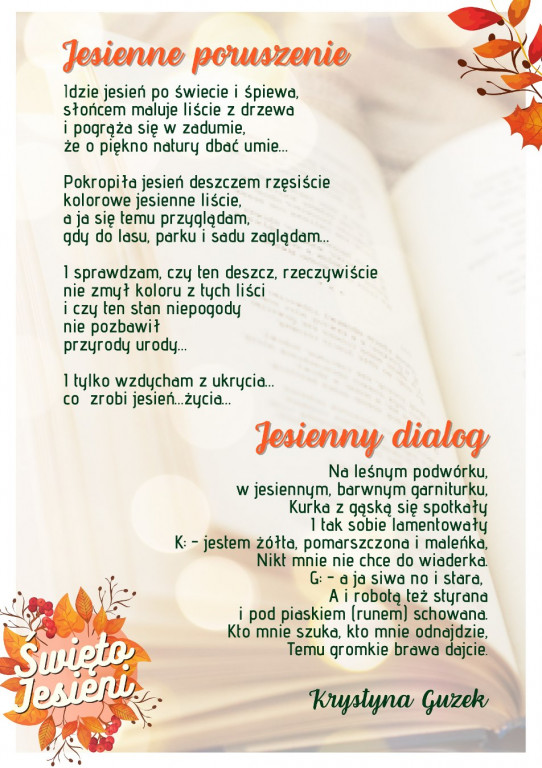 Jesienne poruszenie
Idzie jesień po świecie i śpiewa,
słońcem maluje liście z drzewa
i pogrąża się w zadumie,
że o piękno natury dbać umie...
Pokropiła jesień deszczem rzęsiście
kolorowe jesienne liście,
a ja się temu przyglądam,
gdy do lasu, parku i sadu zaglądam...
I sprawdzam, czy ten deszcz, rzeczywiście
nie zmył koloru z tych liści
i czy ten stan niepogody
nie pozbawił
przyrody urody...
I tylko wzdycham z ukrycia...
co zrobi jesień...życia...
Jesienny dialog
Na leśnym podwórku,
w jesiennym, barwnym garniturku,
Kurka z gąską się spotkały
I tak sobie lamentowały
K: - jestem żółta, pomarszczona i maleńka,
Nikt mnie nie chce do wiaderka.
G: - a ja siwa no i stara,
A i robotą też styrana
i pod piaskiem (runem) schowana.
Kto mnie szuka, kto mnie odnajdzie,
Temu gromkie brawa dajcie.
Krystyna Guzek
Święto
Jesieni